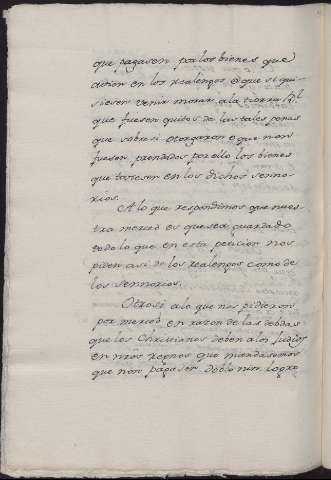 que pagasen por los bienes que
avien en los realengos e que si qui-
siesen venir morar a la tierra Rl
que fuesen quitos de las tales penas
que sobre si otorgaron e que non
fuesen prendados por ello los bienes
que toviesen en los dichos senno-
rios.
A lo que respondimos que nues-
tra merced es que sea guardado
todo lo que en esta peticion nos
piden asi de los realengos como de
los sennorios.
Otrosi a lo que nos pidieron
por merced en razon de las debdas
que los Christianos deben a los Judios
en nros regnos que mandasemos
que non pagasen doblo nin logro